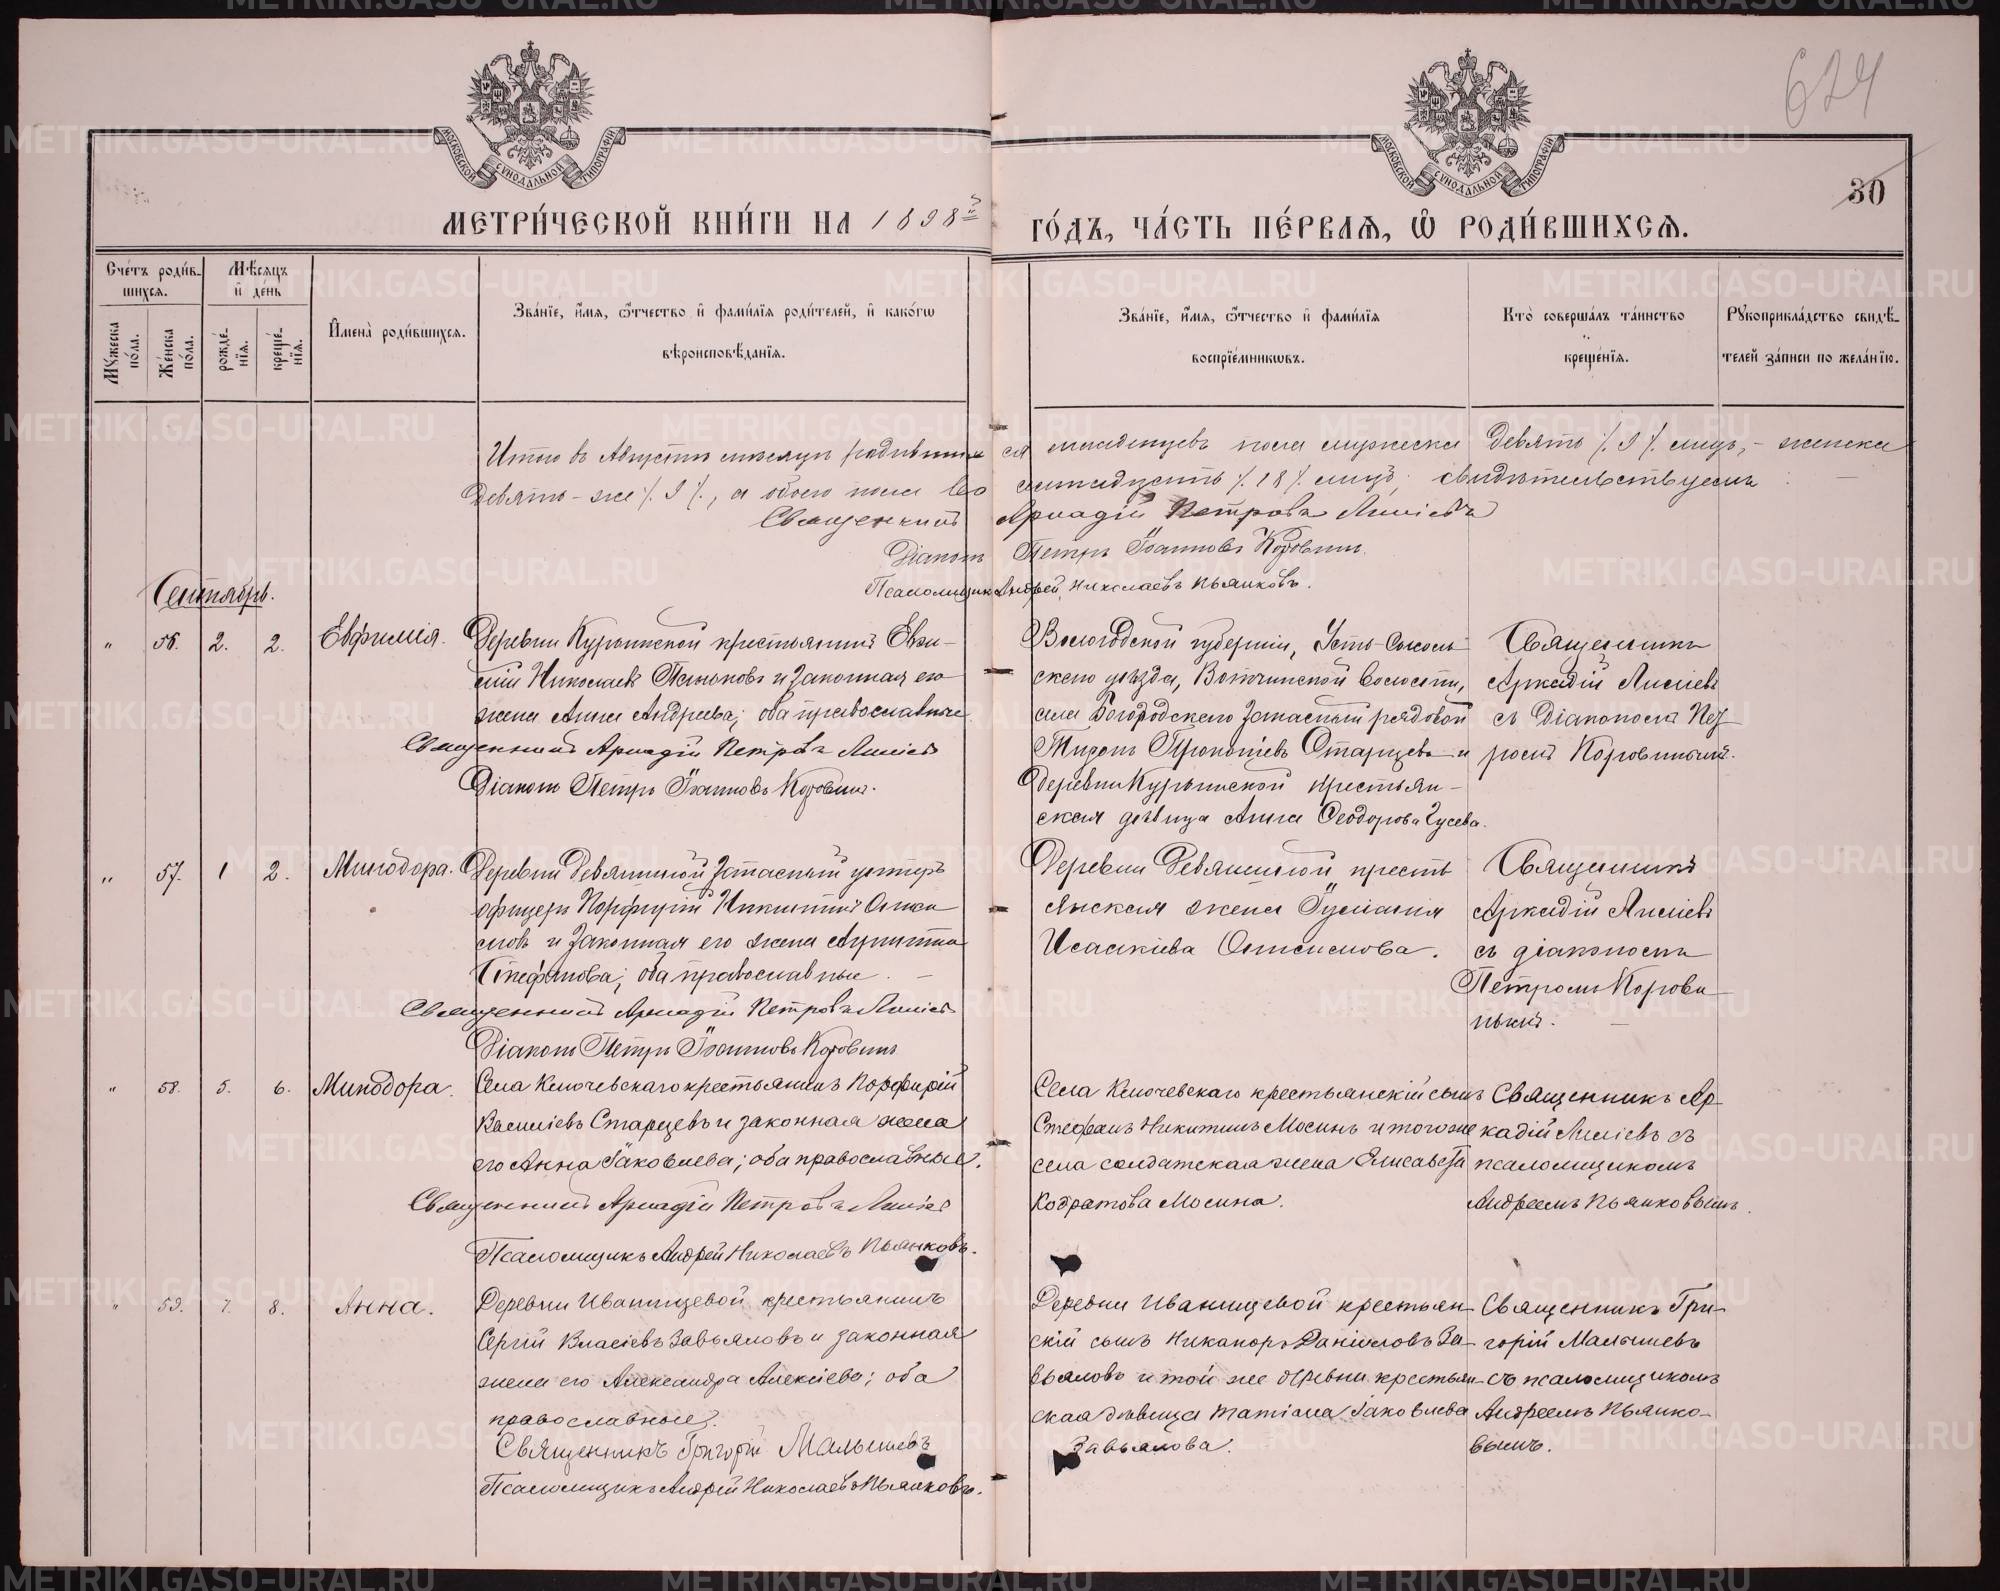 624
МОСКОВСКОЙ СѴНОДАЛЬНОЙ ТИПОГРАФІИ
МОСКОВСКОЙ СѴНОДАЛЬНОЙ ТИПОГРАФІИ
30
МЕТРИ́ЧЕСКОЙ КНИ́ГИ НА 1898й ГО́ДЪ, ЧА́СТЬ ПЕ́РВАѦ, Ѽ РОДИ́ВШИХСѦ.
Сче́тъ роди́вшихсѧ.
Мꙋжеска по́ла.
Же́нска по́ла.
Мѣ́сѧцъ и҆ де́нь
рожде́нїѧ.
креще́нїѧ.
И҆мена̀ роди́вшихсѧ.
Зва́нїе, и҆́мѧ, ѻ҆́тчество и҆ фами́лїѧ роди́телей, и҆ како́гѡ
вѣроисповѣ́данїѧ.
Зва́нїе, и҆́мѧ, ѻ҆́тчество и҆ фами́лїѧ
воспрїе́мникѡвъ.
Кто̀ соверша́лъ та́инство
креще́нїѧ.
Рꙋкоприкла́дство свидѣ́
телей за́писи по жела́нїю.
Итого въ Августѣ мѣсяцѣ родившихся младенцевъ пола мужеска девять /.9/. лицъ, - женска
девять - же /.9/., а обоего пола восемнадцать /.18/. лицъ; свидѣтельствуемъ:
Священникъ Аркадій Петровъ Лисіевъ
Діаконъ Петръ Іоанновъ Коровинъ.
Псаломщикъ Андрей Николаевъ Пьянковъ.
Сентябрь.
" 56. 2. 2. Евфимія.
Деревни Курьинской крестьянинъ Евге-
ній Николаевъ Паньковъ и законная его
жена Анна Андреева; оба православные
Священникъ Аркадій Петровъ Лисіевъ
Діаконъ Петръ Іоанновъ Коровинъ.
Вологодской губерніи, Усть-Сысоль-
скаго уѣзда, Вотчинской волости,
села Богородскаго запасный рядовой
Прокопіевъ Старцевъ и
деревни Курьинской крестьян-
ская дѣвица Анна Ѳеодорова Гусева.
Священникъ
Аркадій Лисіевъ
съ Діакономъ Пет-
ромъ Коровинымъ.
" 57. 1 2. Минодора.
Деревни Девяшиной запасный унтеръ
офицеръ Порфирій Никитинъ Ониси-
мовъ и законная его жена
Стефанова; оба православные. —
Священникъ Аркадій Петровъ Лисіевъ
Діаконъ Петръ Іоанновъ Коровинъ
Деревни Девяшиной кресть
янская жена Іуліанія
Исаакіева Онисимова.
Священникъ
Аркадій Лисіевъ
съ діакономъ
Петромъ Корови-
нымъ. —
" 58. 5. 6. Минодора.
Села Ключевскаго крестьянинъ Порфирій
Василіевъ Старцевъ и законная жена
его Анна Іаковлева; оба православные.
Священникъ Аркадій Петровъ Лисіевъ
Псаломщикъ Андрей Николаевъ Пьянковъ.
Села Ключевскаго крестьянскій сынъ
Стефанъ Никитинъ Мосинъ и того же
села солдатская жена Елисавета
Кодратова Мосина.
Священникъ Ар
кадій Лисіевъ съ
псаломщикомъ
Андреемъ Пьянковымъ.
" 59. 7. 8. Анна.
Деревни Иванищевой крестьянинъ
Сергій Власіевъ Завьяловъ и законная
жена его Александра Алексіева; оба
православные.
Священникъ Григорій Малышевъ
Псаломщикъ Андрей Николаевъ Пьянковъ.
Деревни Иванищевой крестьян-
скій сынъ Никаноръ Даніиловъ За-
вьяловъ и той же деревни крестьян-
ская дѣвица Татіана Іаковлева
Завьялова.
Священникъ Гри-
горій Малышевъ
съ псаломщикомъ
Андреемъ Пьянко-
вымъ.
METRIKI.GASO-URAL.RU